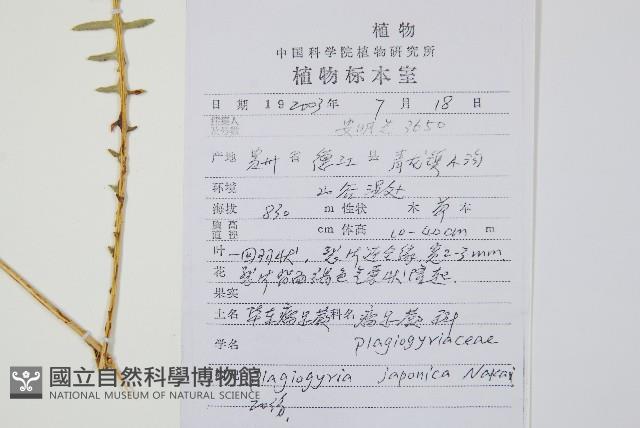 植物
中国科学院植物研究所
植物标本室
日期 19 2003年 7月 18日
采集人
及号数 安明态 3650
产地 贵州省 德江县 青龙镇木沟
环境 山谷湿处
海拔 830 m 性状 木 草 本
胸高
直径 cm 体高 10-40cm m
叶 一回羽状, 裂片近全缘, 宽2-3mm.
花
果实
土名 华东瘤足蕨 科名 瘤足蕨科
学名 plagiogyriaceae
plagiogyria japonica Nakai
國立自然科學博物館
NATIONAL MUSEUM OF NATURAL SCIENCE